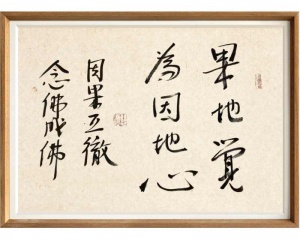 果地覺
為因地心
因果互徹
念佛成佛